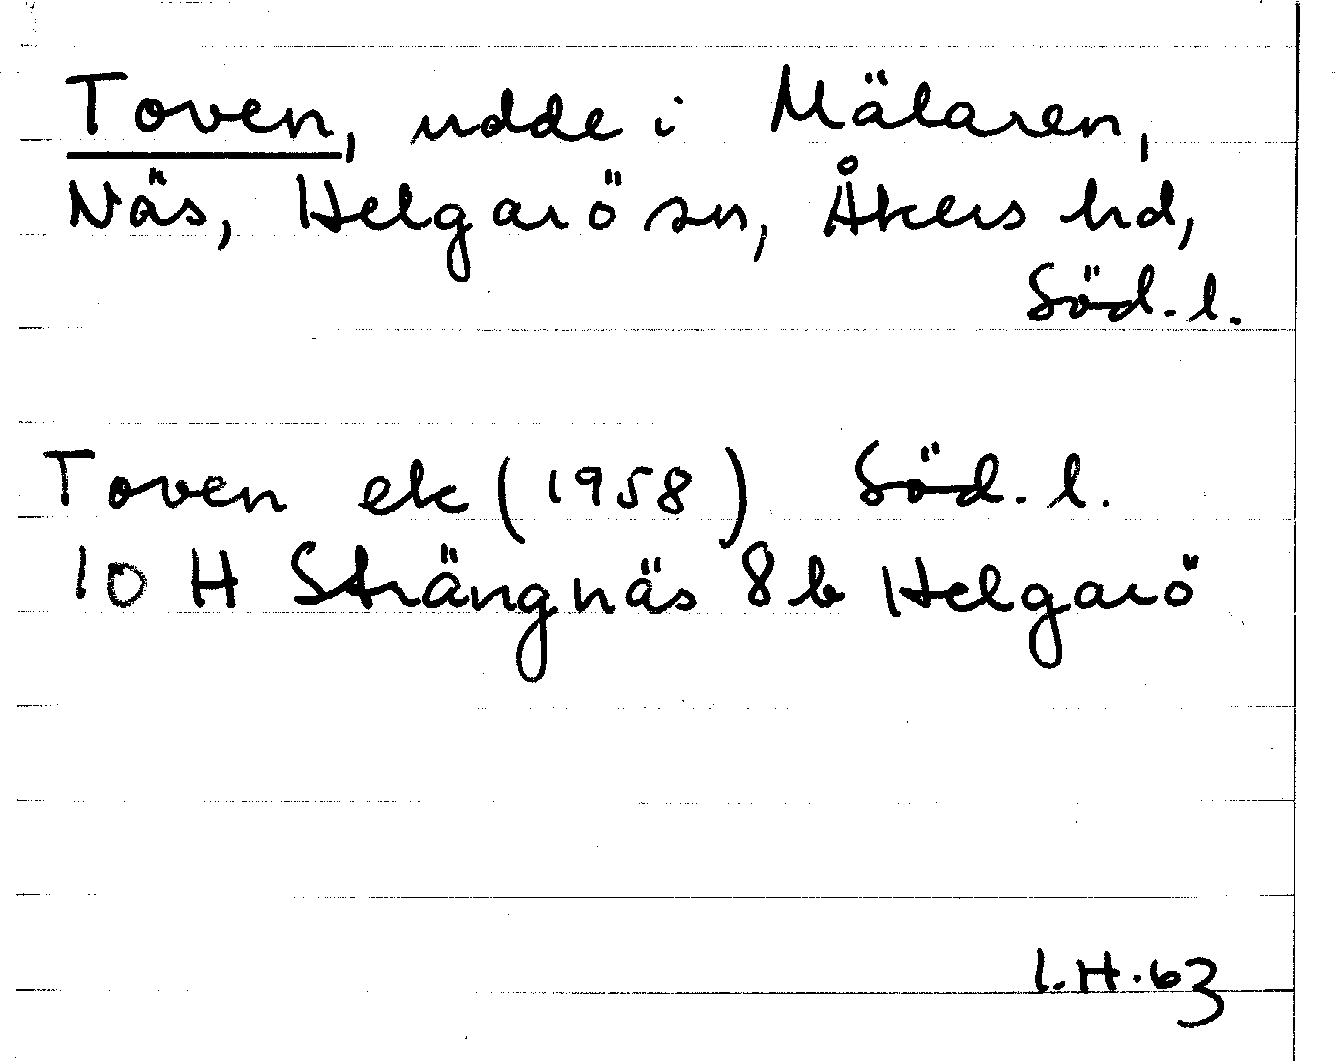 Toven, udde i Mälaren,
Näs, Helgarö sn, Åkers hd,
Söd. l.
Toven ek (1958) Söd. l.
10 H Strängnäs 8b Helgarö
I.H.63